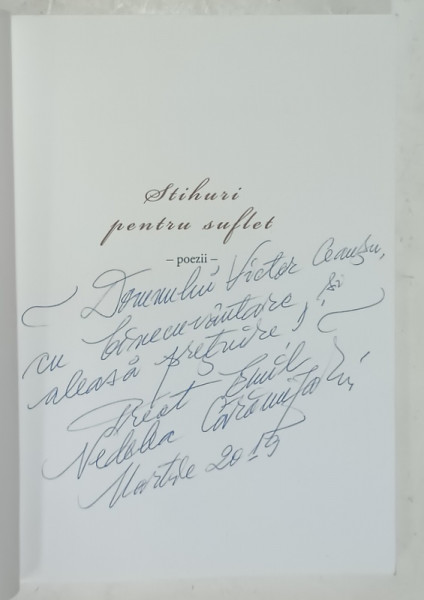 Stihuri
pentru suflet
– poezii –
Domnului Victor Ceauşu,
cu binecuvântare şi
aleasă preţuire!
Preot Emil
Nedelea Cărămizaru
Martie 2019